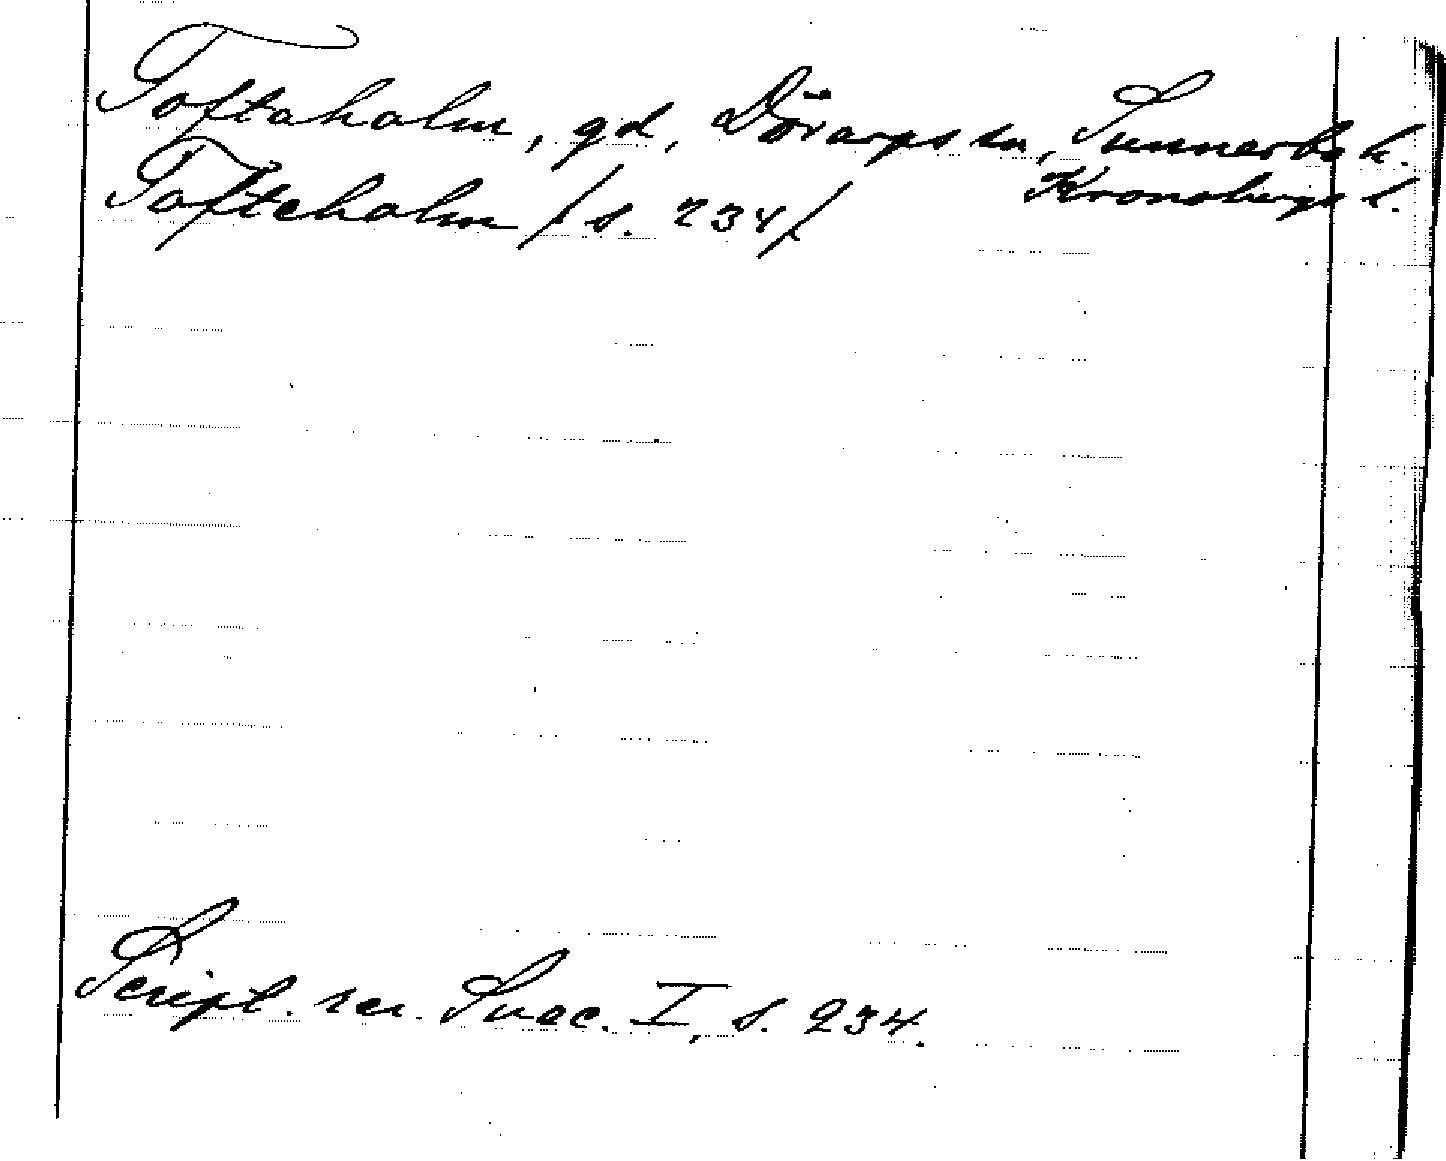 Toftaholm, gd, Dörarps sn, Sunnerbo h.
Kronobergs l.
Tofteholm / s. 234/
Script. rer. Suec. I, s. 234.